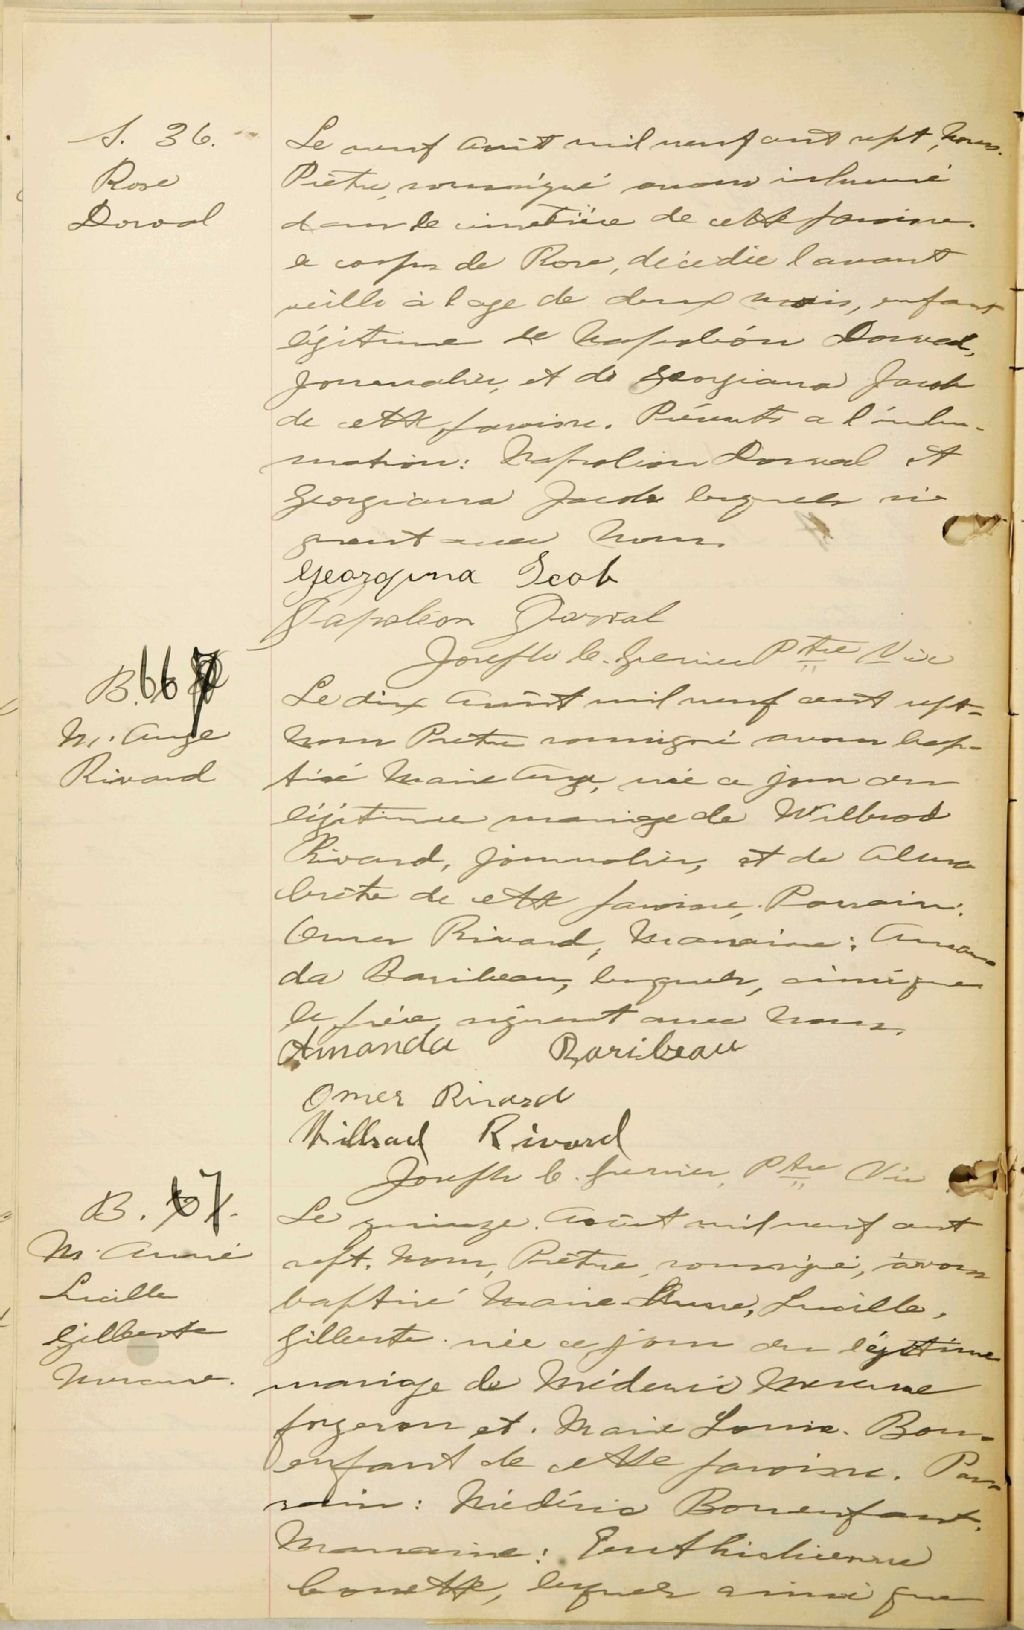 S. 36.
Rose
Dorval
Le neuf août mil neuf cent sept, nous
Prêtre, soussigné avons inhumé
dans le cimetière de cette paroisse
le corps de Rose, décédée l'avant
veille à l'age de deux mois, enfant
légitime de Napoléon Dorval,
journalier, et de Georgiana Jacob
de cette paroisse. Présents a l'inhu-
mation: Napoléon Dorval et
Georgiana Jacob lesquels si-
gnent avec nous.
Georgina Jcob
Napoléon Dorval
Joseph C. Grenier Ptre Vic
B. 66
M. Ange
Rivard
Le dix août mil neuf cent sept-
nous Prêtre soussigné avons bap-
tisé Marie Ange, née ce jour du
légitime mariage de Wilbrod
Rivard, journalier, et de Alma
de cette paroisse, Parrain:
Omer Rivard, Marraine: Aman
da Baribeau, lesquels, ainsi que
le père, signent avec nous.
Amanda Baribeau
Omer Rivard
Willrad Rivard
Joseph C. Grenier, Ptre Vic
B. 67.
M. Anne
Lucille
Gilberte
Le quinze août mil neuf cent
sept. nous, Prêtre, soussigné, avons
baptisé Marie-Anne, Lucille,
Gilberte née ce jour du légitime
mariage de Médéric
forgeron et. Marie Louise. Bon-
enfant de cette paroisse. Par-
rain: Médéric Bonenfant.
Marraine:
lesquels ainsi que